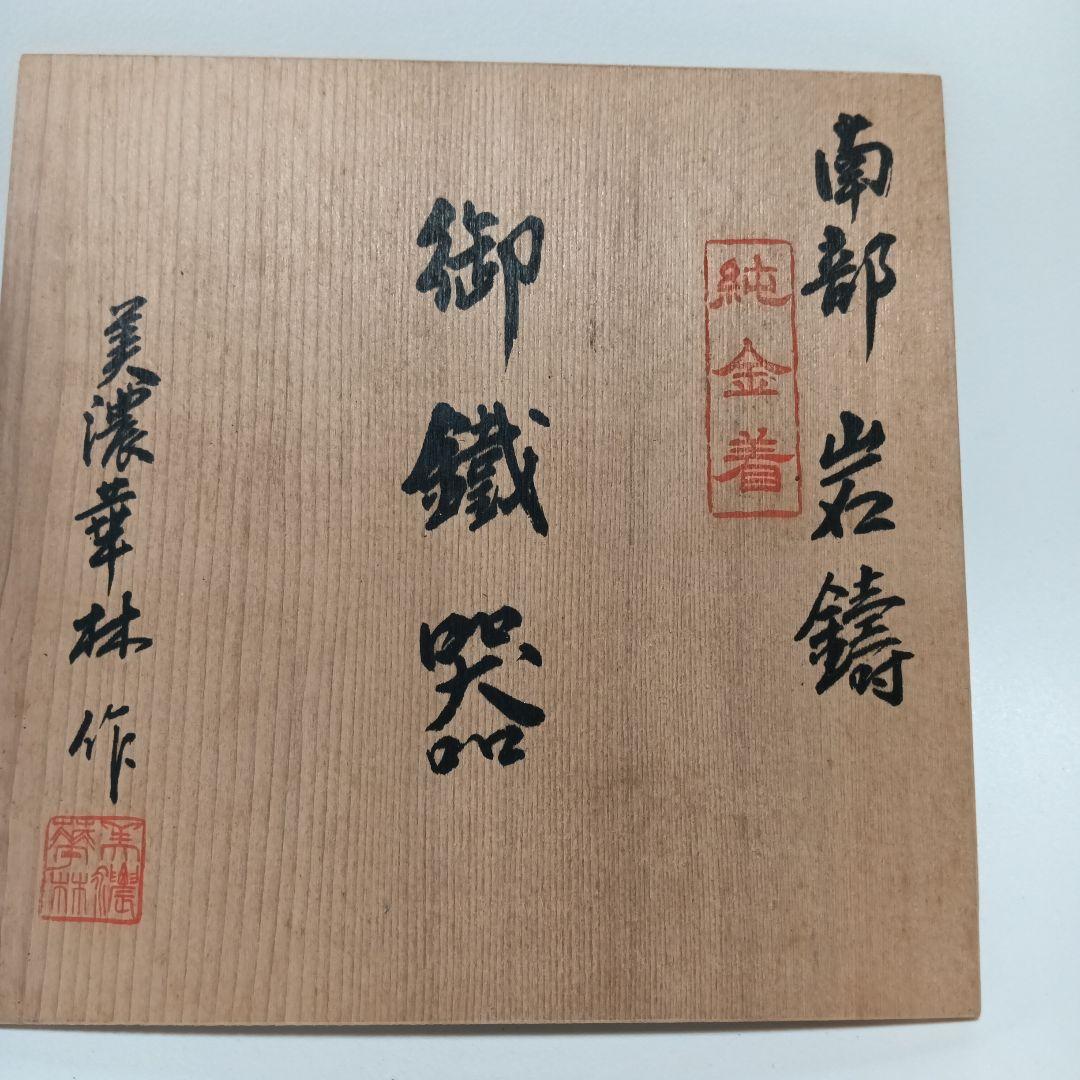 南部 岩鑄
純金着
御鐵器
美濃華林 作
美濃
華林